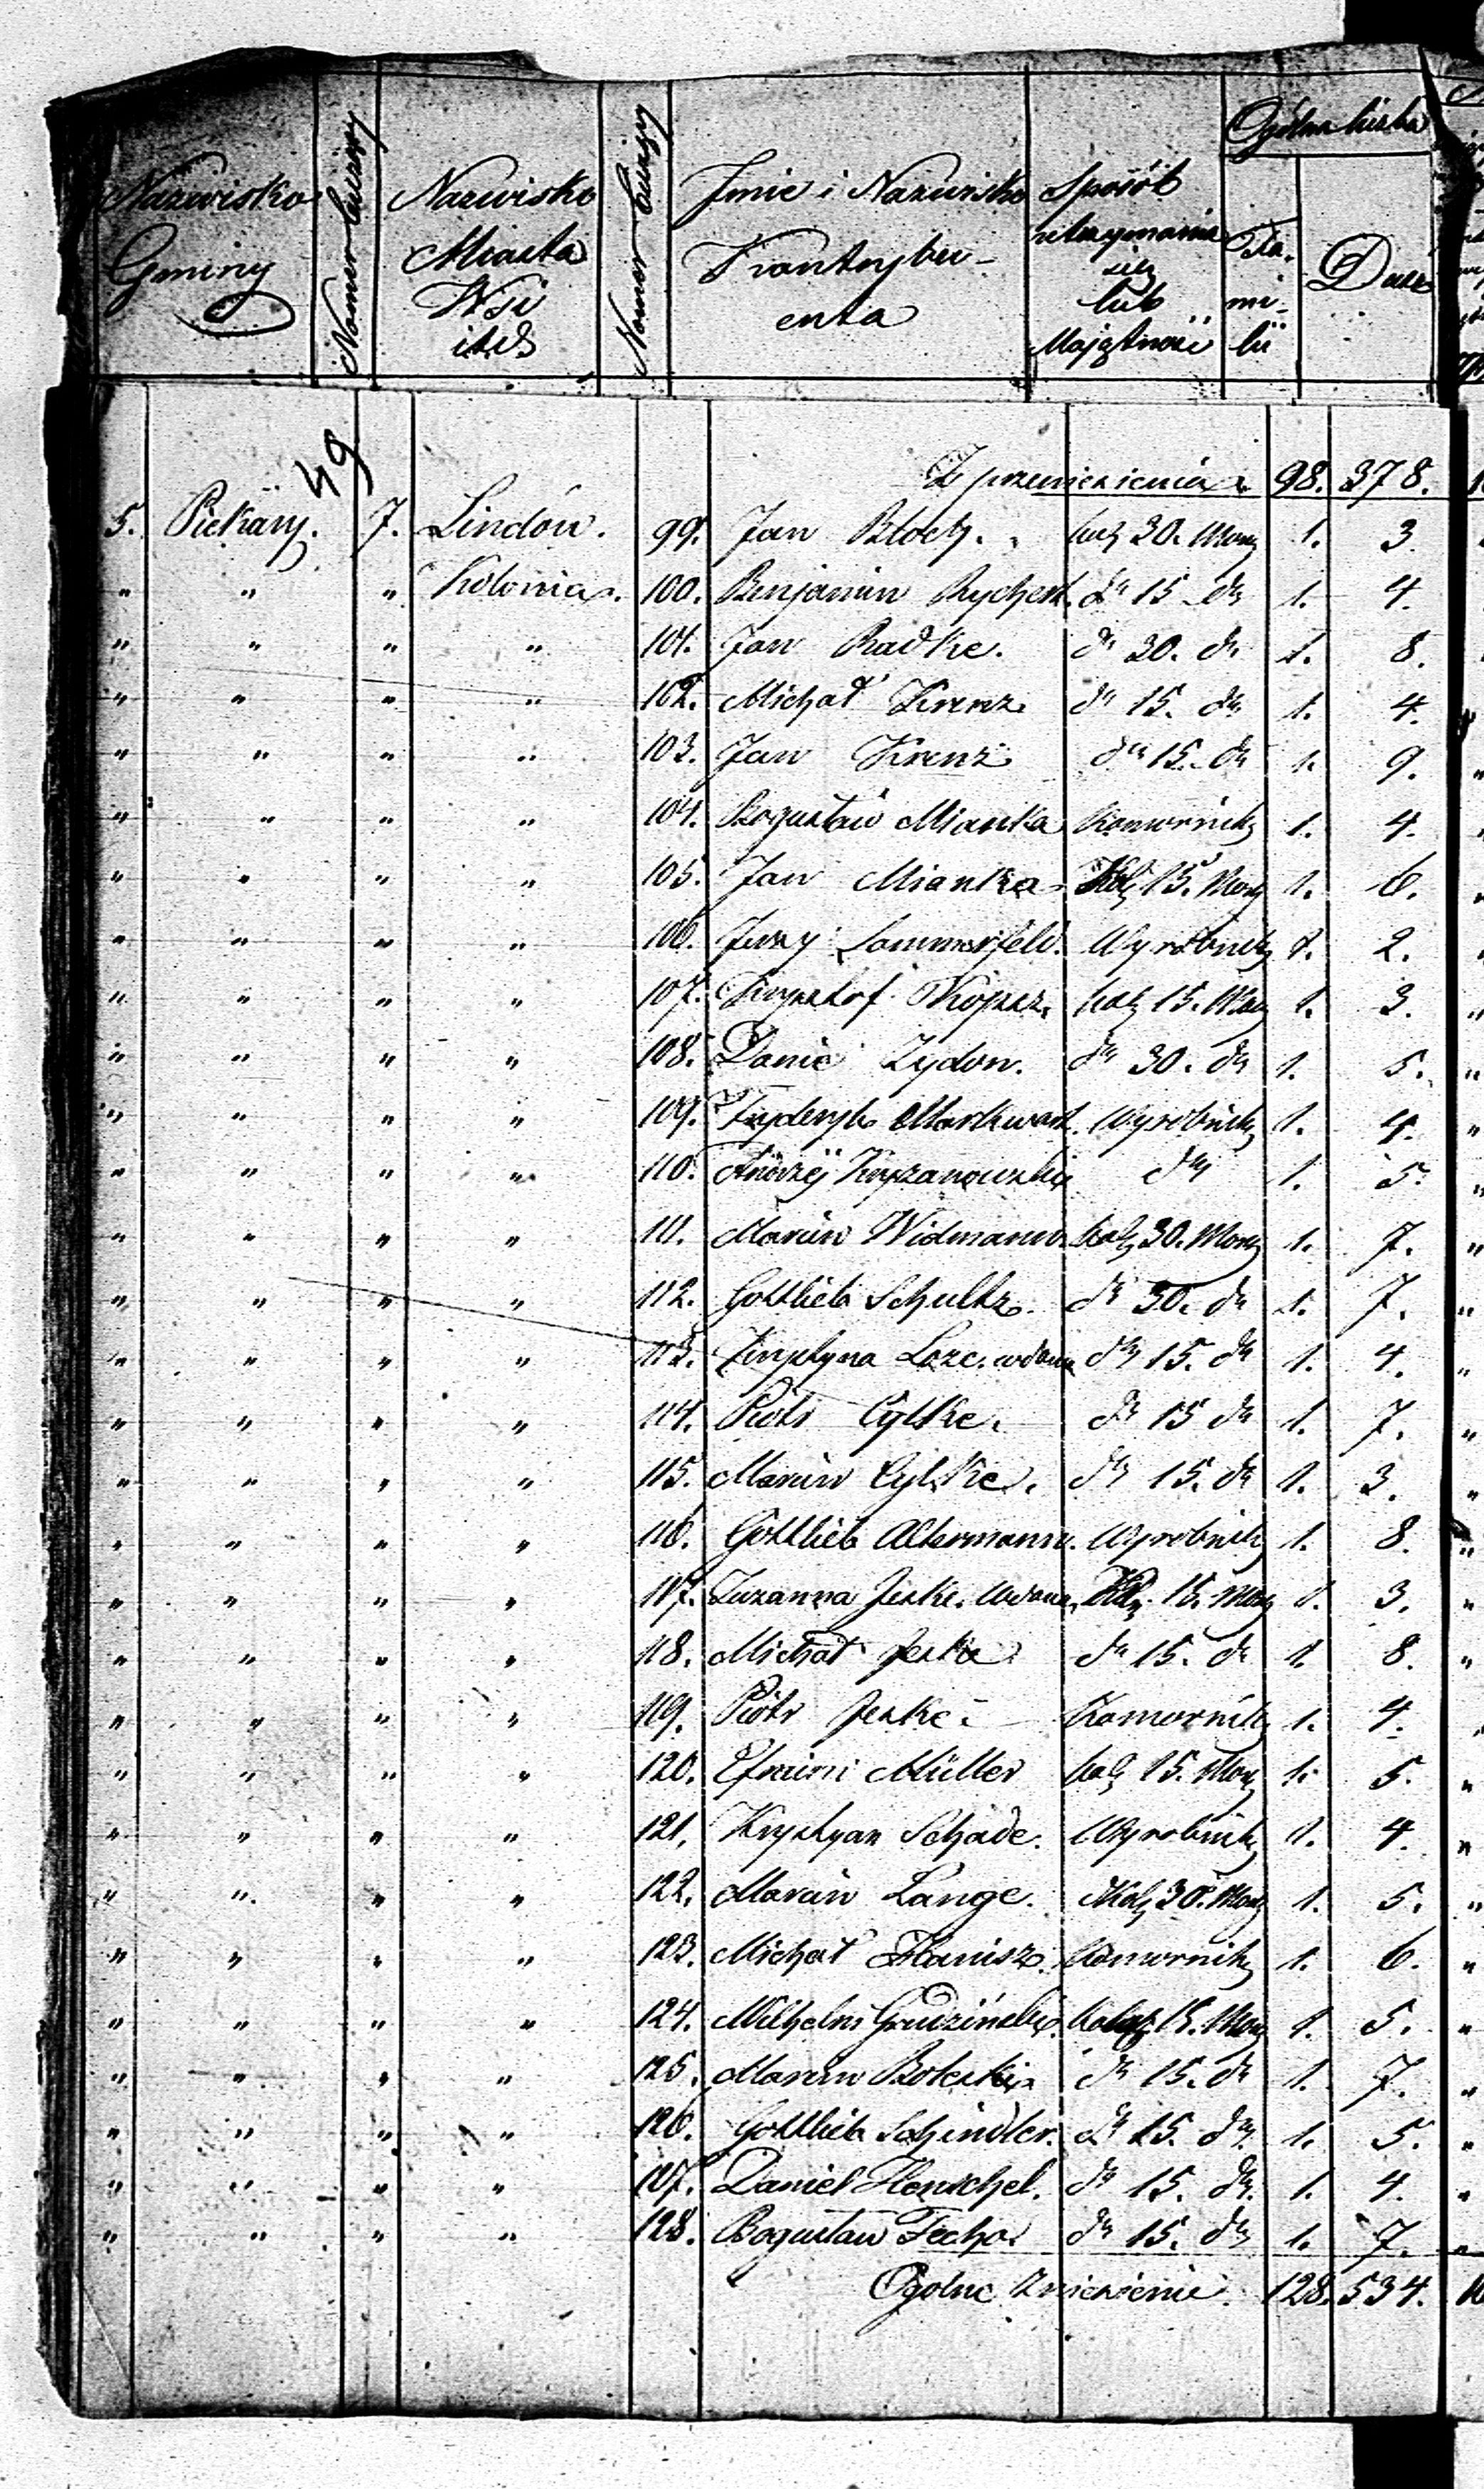 Nazwisko Gminy | Numer bieżący | Nazwisko Miasta Wsi itd | Numer bieżący | Imie i Nazwisko Kontrybuenta | Sposób utrzymania się lub Majątność | Ogólna liczba | Familii | Dusz
49
Z przeniesienia 98. 378.
5. Piekary. 7. Lindów. 99. Jan Block. Kol 30. Morg 1. 3.
" " " Kolonia. 100. Benjamin Rychert. dtt 15 dtt 1. 4.
" " " " 101. Jan Radke. dtt 30. dtt 1. 8.
" " " " 102. Michał Krenz dtt 15. dtt 1. 4.
" " " " 103. Jan Krenz dtt 15. dtt 1. 9.
" " " " 104. Bogusław Mianka Komornik 1. 4.
" " " " 105. Jan Mianka Kol 15. Morg 1. 6.
" " " " 106. Jerzy Sommerfeld. Wyrobnik 1. 2.
" " " " 107. Krysztof Kol 15. Morg 1. 3.
" " " " 108. Daniel Zydon. dtt 30. dtt 1. 5.
" " " " 109. Fryderyk Markwart. Wyrobnik 1. 4.
" " " " 110. Andrzéj Kryzanowski dtt 1. 5.
" " " " 111. Marcin Widmann. Kol 30. Morg 1. 7.
" " " " 112. Gottlieb Schultz. dtt 30. dtt 1. 7.
" " " " 113. Krystyna Lozc. wdowa dtt 15. dtt 1. 4.
" " " " 114. Piotr Cylke. dtt 15 dtt 1. 7.
" " " " 115. Marcin Cylke. dtt 15. dtt 1. 3.
" " " " 116. Gottlieb Altermann. Wyrobnik 1. 8.
" " " " 117. Zuzanna Jeske. Wdowa Kol 15. Morg 1. 3.
" " " " 118. Michał Jeske dtt 15. dtt 1. 8.
" " " " 119. Piotr Jeske. Komornik 1. 4.
" " " " 120. Efraim Müller Kol 15. Morg 1. 5.
" " " " 121. Krystyan Schade. Wyrobnik 1. 4.
" " " " 122. Marcin Lange. Kol 30. Morg 1. 5.
" " " " 123. Michał Hanisz. Komornik 1. 6.
" " " " 124. Wilhelm Grudziński. 15. Morg 1. 5.
" " " " 125. Marcin Boleski dtt 15. dtt 1. 7.
" " " " 126. Gottlieb Schindler. dtt 15. dtt. 1. 5.
" " " " 127. Daniel Henschel. dtt 15. dtt. 1. 4.
" " " " 128. Bogusław Fecho. dtt 15. dtt 1. 7.
Ogólne Zniesienie. 128. 534.